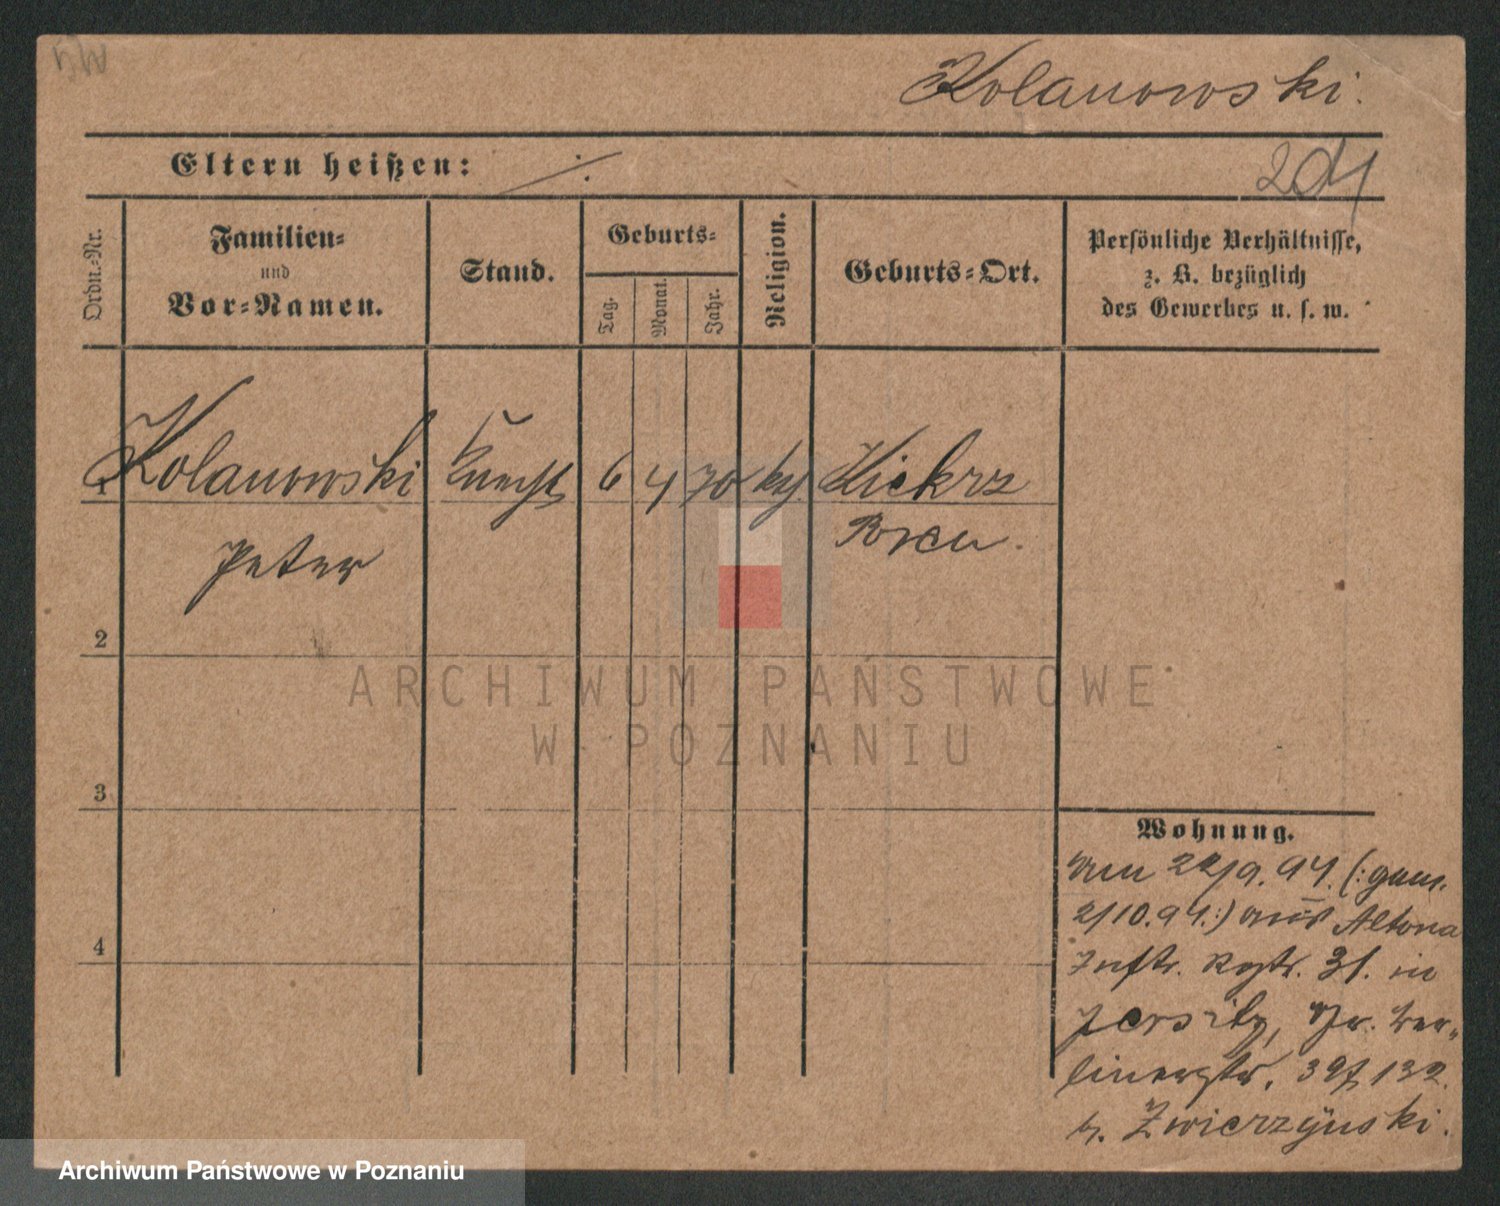 Kolanowski.
Eltern heißen: ./.
Ordn.-Nr.
Familien-
und
Vor-Namen.
Stand.
Geburts-
Tag.
Monat.
Jahr.
Religion.
Geburts-Ort.
Persönliche Verhältnisse,
z. B. bezüglich
des Gewerbes u. s. w.
1 Kolanowski Knecht 6 4 70 kth Kiekrz
Peter Posen.
2
3
4
Wohnung.
am 9.94. (:gem.
2/10.94.:) aus Altona
Inftr. Rgtr. 31. in
Jersitz, Gr. Ber-
linerstr. 132.
b. Zwierzyński.
ARCHIWUM PAŃSTWOWE
W POZNANIU
Archiwum Państwowe w Poznaniu